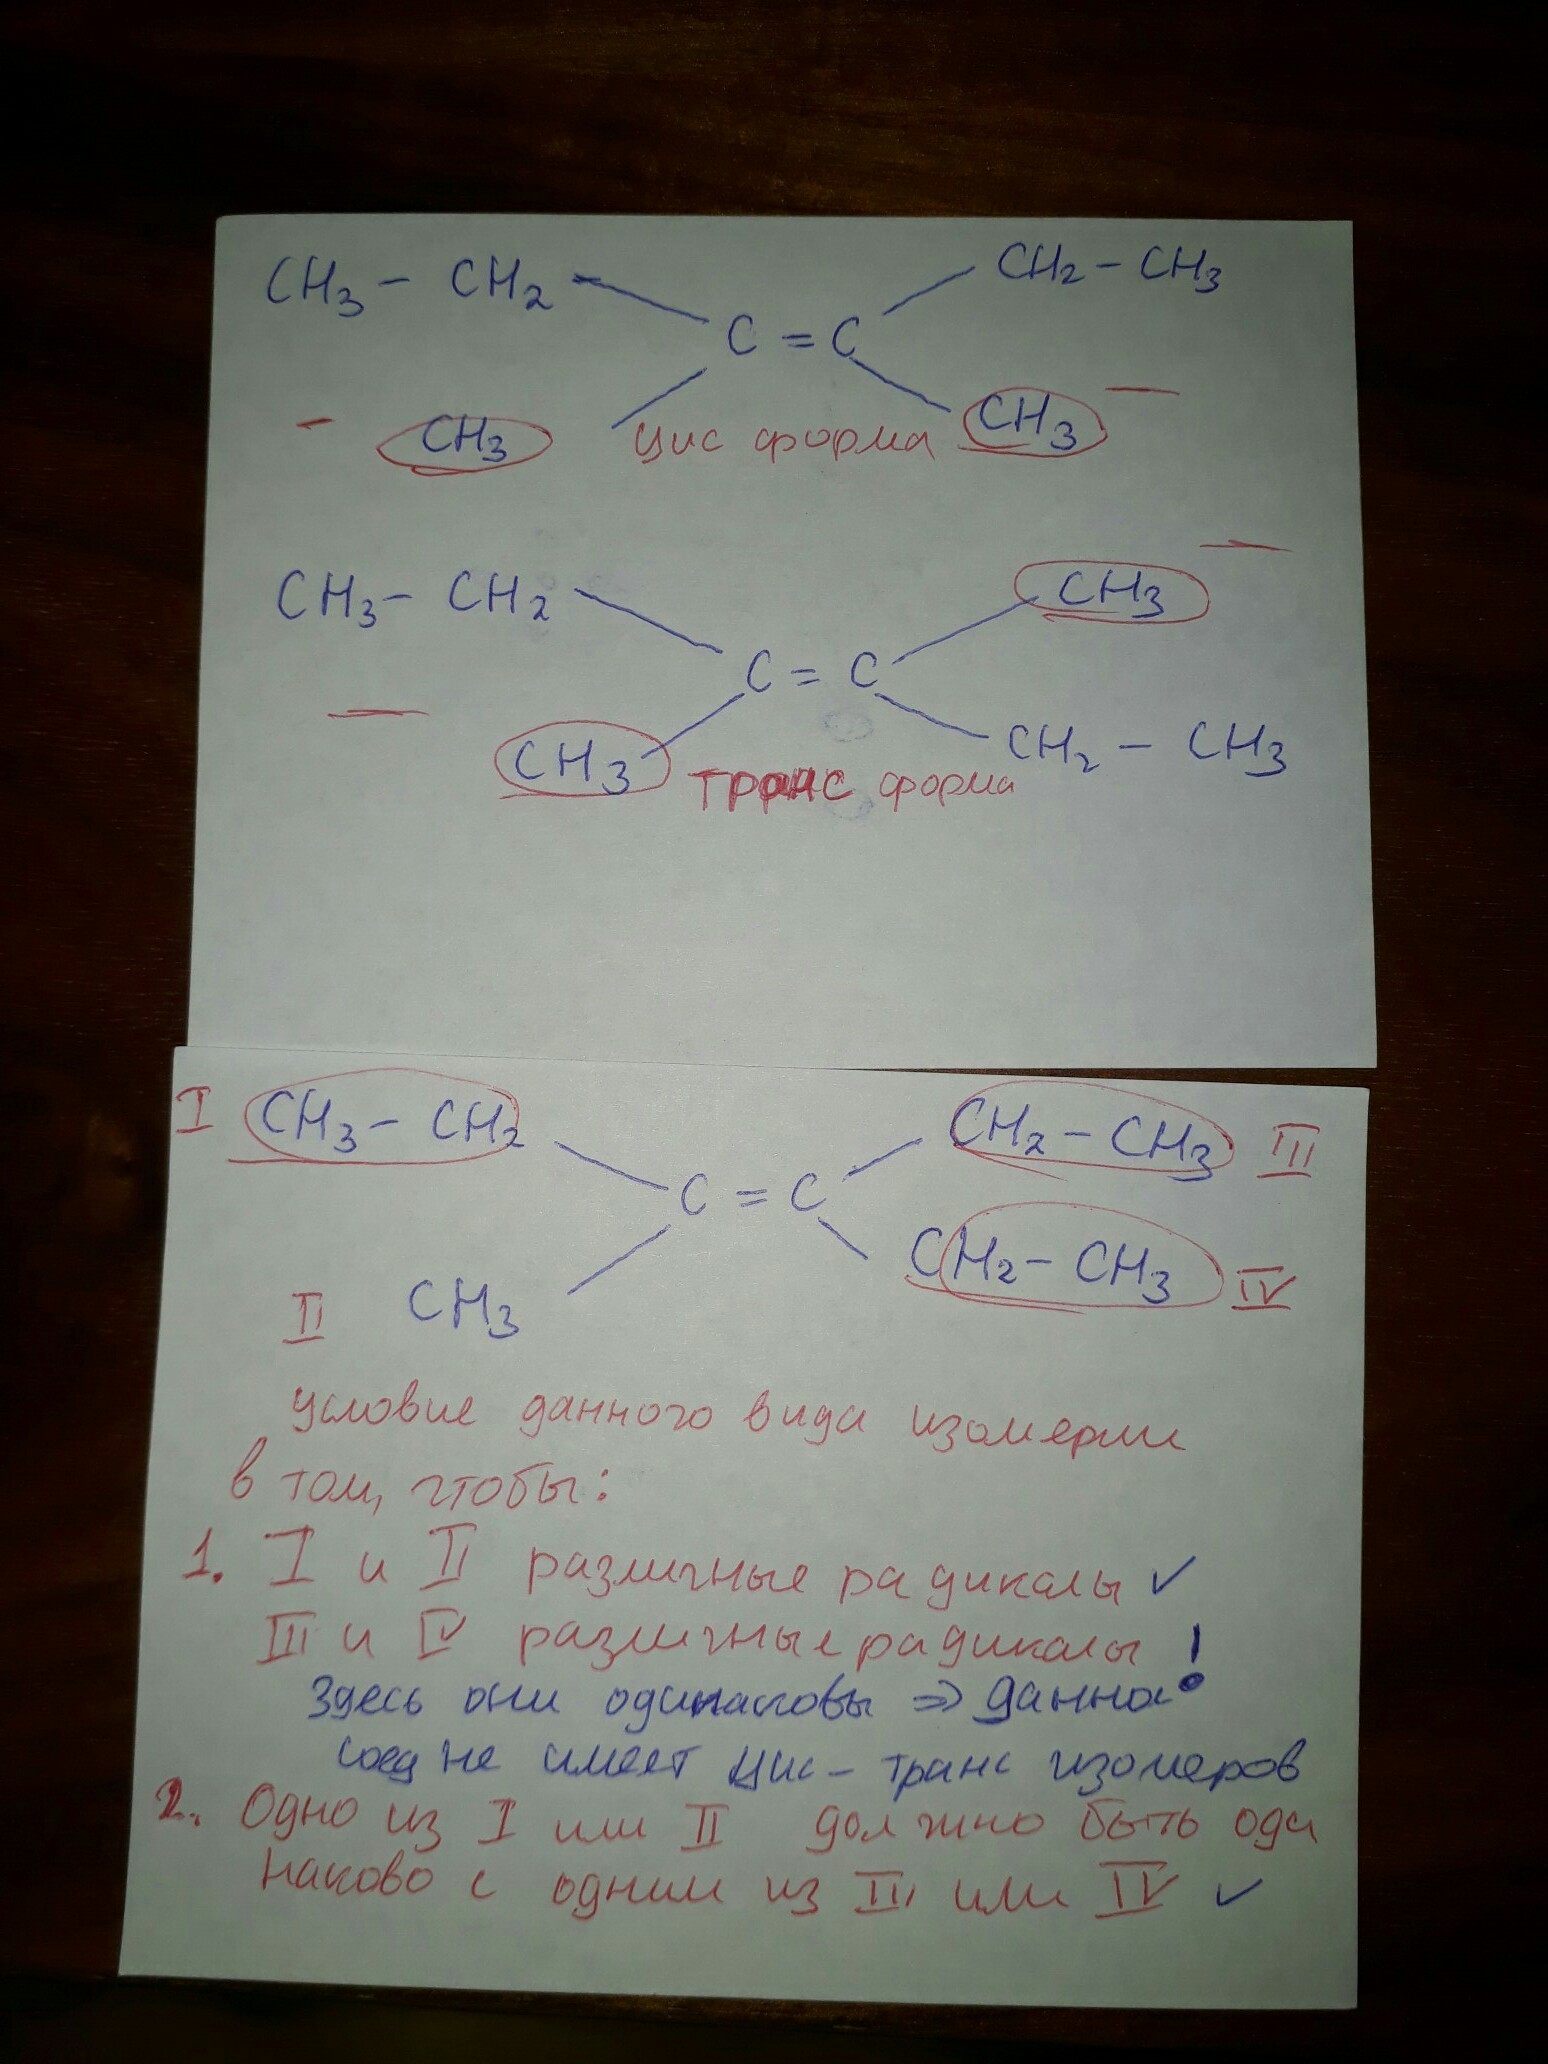 CH₃ - CH₂ CH₂ - CH₃
C = C
CH₃ цис форма CH₃
CH₃ - CH₂ CH₃
C = C
CH₃ транс форма CH₂ - CH₃
I CH₃ - CH₂ CH₂ - CH₃ III
C = C
II CH₃ CH₂ - CH₃ IV
условие данного вида изомерии
в том, чтобы:
1. I и II различные радикалы ✓
III и IV различные радикалы !
Здесь они одинаковы => данное
соед не имеет цис - транс изомеров
2. Одно из I или II должно быть оди
наково с одним из III или IV ✓